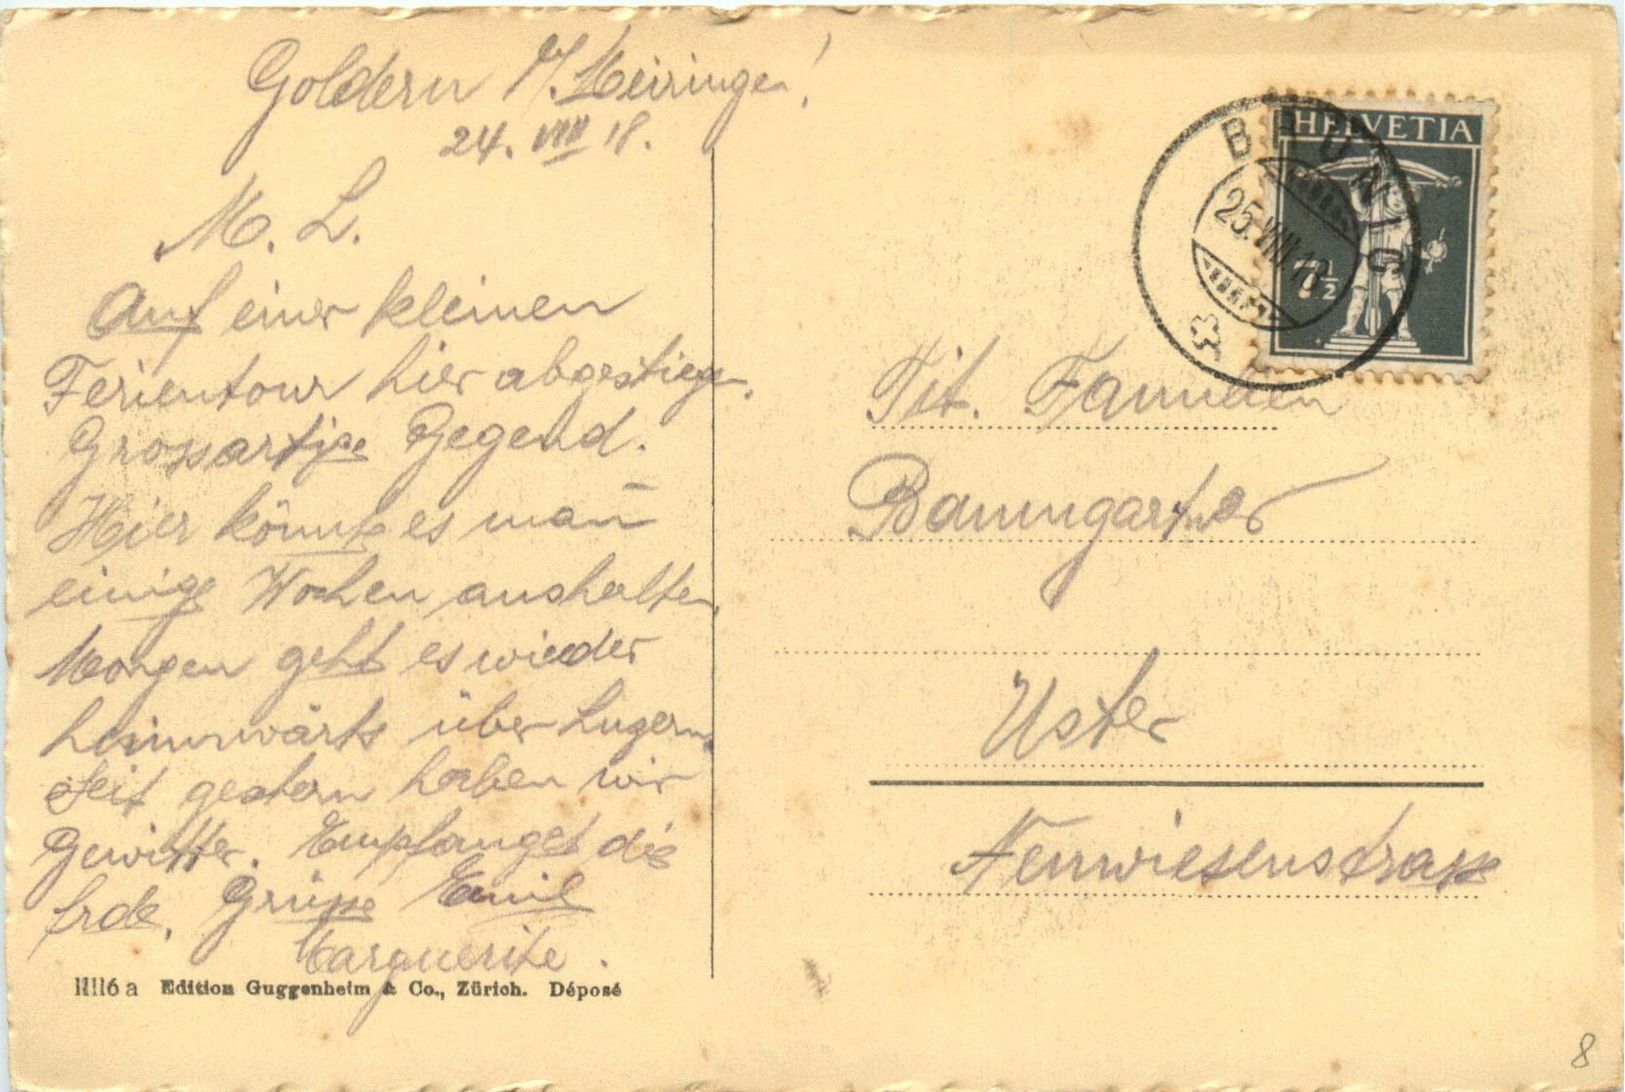 Goldern b/ Meiringen!
24. VIII 18.
M. L.
Auf einer kleinen
Ferientour hier abgestiegen.
Grossartige Gegend.
Hier könnte es man
einige Wochen aushalten.
Morgen geht es wieder
heimwärts über Luzern.
Seit gestern haben wir
Gewitter. Empfanget die
frdl. Grüsse Emil
Marguerite.
11116 a Edition Guggenheim & Co., Zürich. Déposé
HELVETIA
7½
BRÜNIG
25.VIII.18
Tit. Familien
Baumgartner
Uster
Fennwiesenstrasse
8